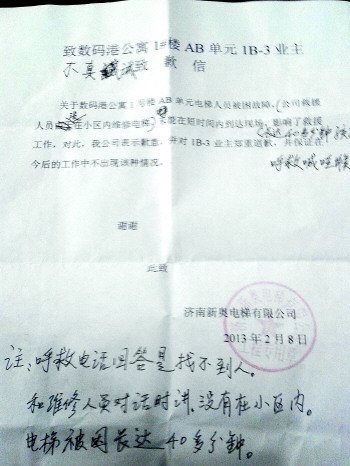 致数码港公寓 1#楼 AB 单元 1B-3 业主
不真诚致 歉 信
关于数码港公寓 1 号楼 AB 单元电梯人员被困故障,(公司救援
人员在小区内维修电梯)未能在短时间内到达现场,影响了救援
(长达40多分钟
工作。对此,我公司表示歉意,并对 1B-3 业主郑重道歉,并保证在
今后的工作中不出现该种情况。
呼救喊哑喉
谢谢
此致
济南新奥电梯有限公司
2013 年 2 月 8 日
注:呼救电话回答是找不到人。
和维修人员对话时讲,没有在小区内。
电梯被困长达40多分钟。